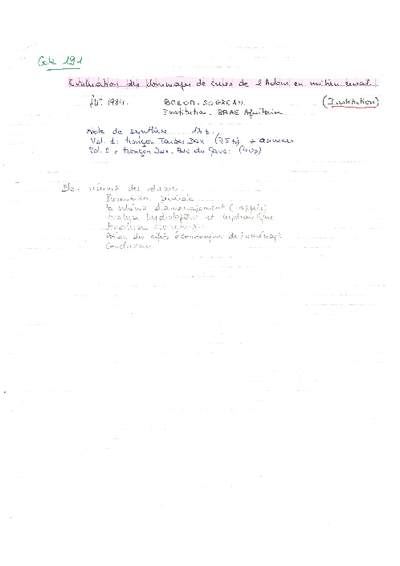 Cote 191
Evaluation des dommages de crues de l'Adour en milieu rural
fév. 1984. BCEOM. SOGREAH. (Institution)
Institution. SRAE Aquitaine
Note de synthèse 17 p.
Vol. 1: tronçon Tarbes Dax (75 p) + annexes
Vol. 2: tronçon Dax. Bec du Gave: (40p)
résumé des
Présentation générale
le schéma d'aménagement
Analyse hydrologique et hydraulique
Analyse économique
des effets économiques de
Conclusion